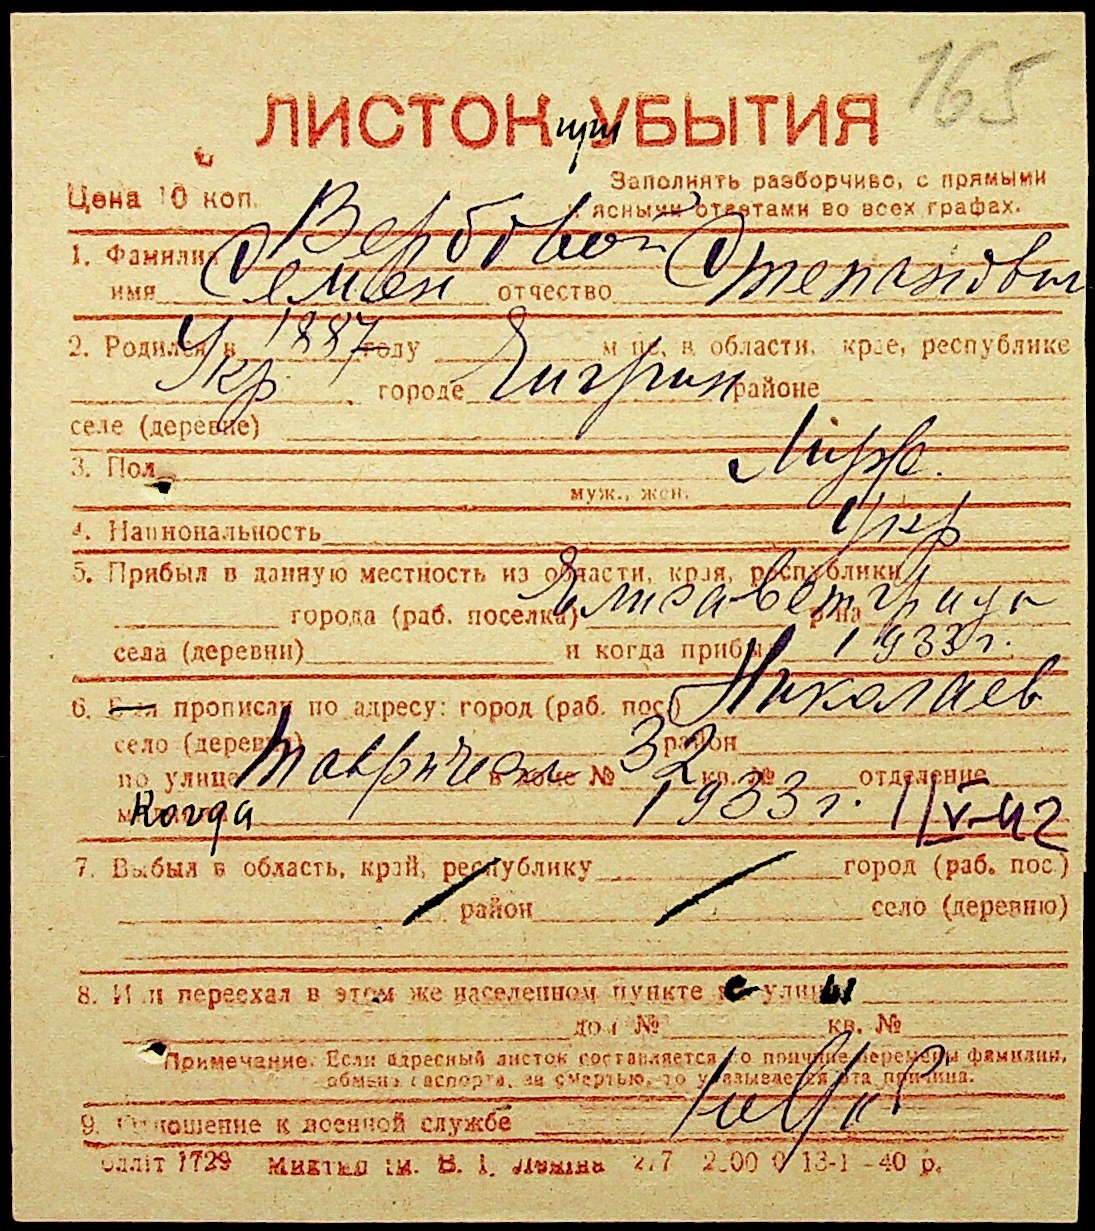 165
ЛИСТОК УБЫТИЯ
при
Цена 10 коп.
Заполнять разборчиво, с прямыми
и ясными ответами во всех графах.
1. Фамилия Вербовой
имя Семен отчество Степанович
2. Родился в 1887 году м-це, в области, крае, республике
Укр. городе районе
селе (деревне)
3. Пол Муж.
муж., жен.
4. Национальность Укр
5. Прибыл в данную местность из области, края, республики
города (раб. поселка) Елисаветграда р-на
села (деревни) и когда прибыл 1933 г.
6. Был прописан по адресу: город (раб. пос.) Николаев
село (деревня) район
по улице Таврическ в доме № 32 кв. № отделение
Когда 1933 г. 11/V-42
7. Выбыл в область, край, республику город (раб. пос.)
район село (деревню)
8. Или переехал в этом же населенном пункте с улицы
дом № кв. №
Примечание. Если адресный листок составляется по причине перемены фамилии,
обмена паспорта, за смертью, то указывается эта причина.
9. Отношение к военной службе
Оллiт 1729 им. В. І. Ленiна 13-1-40 р.